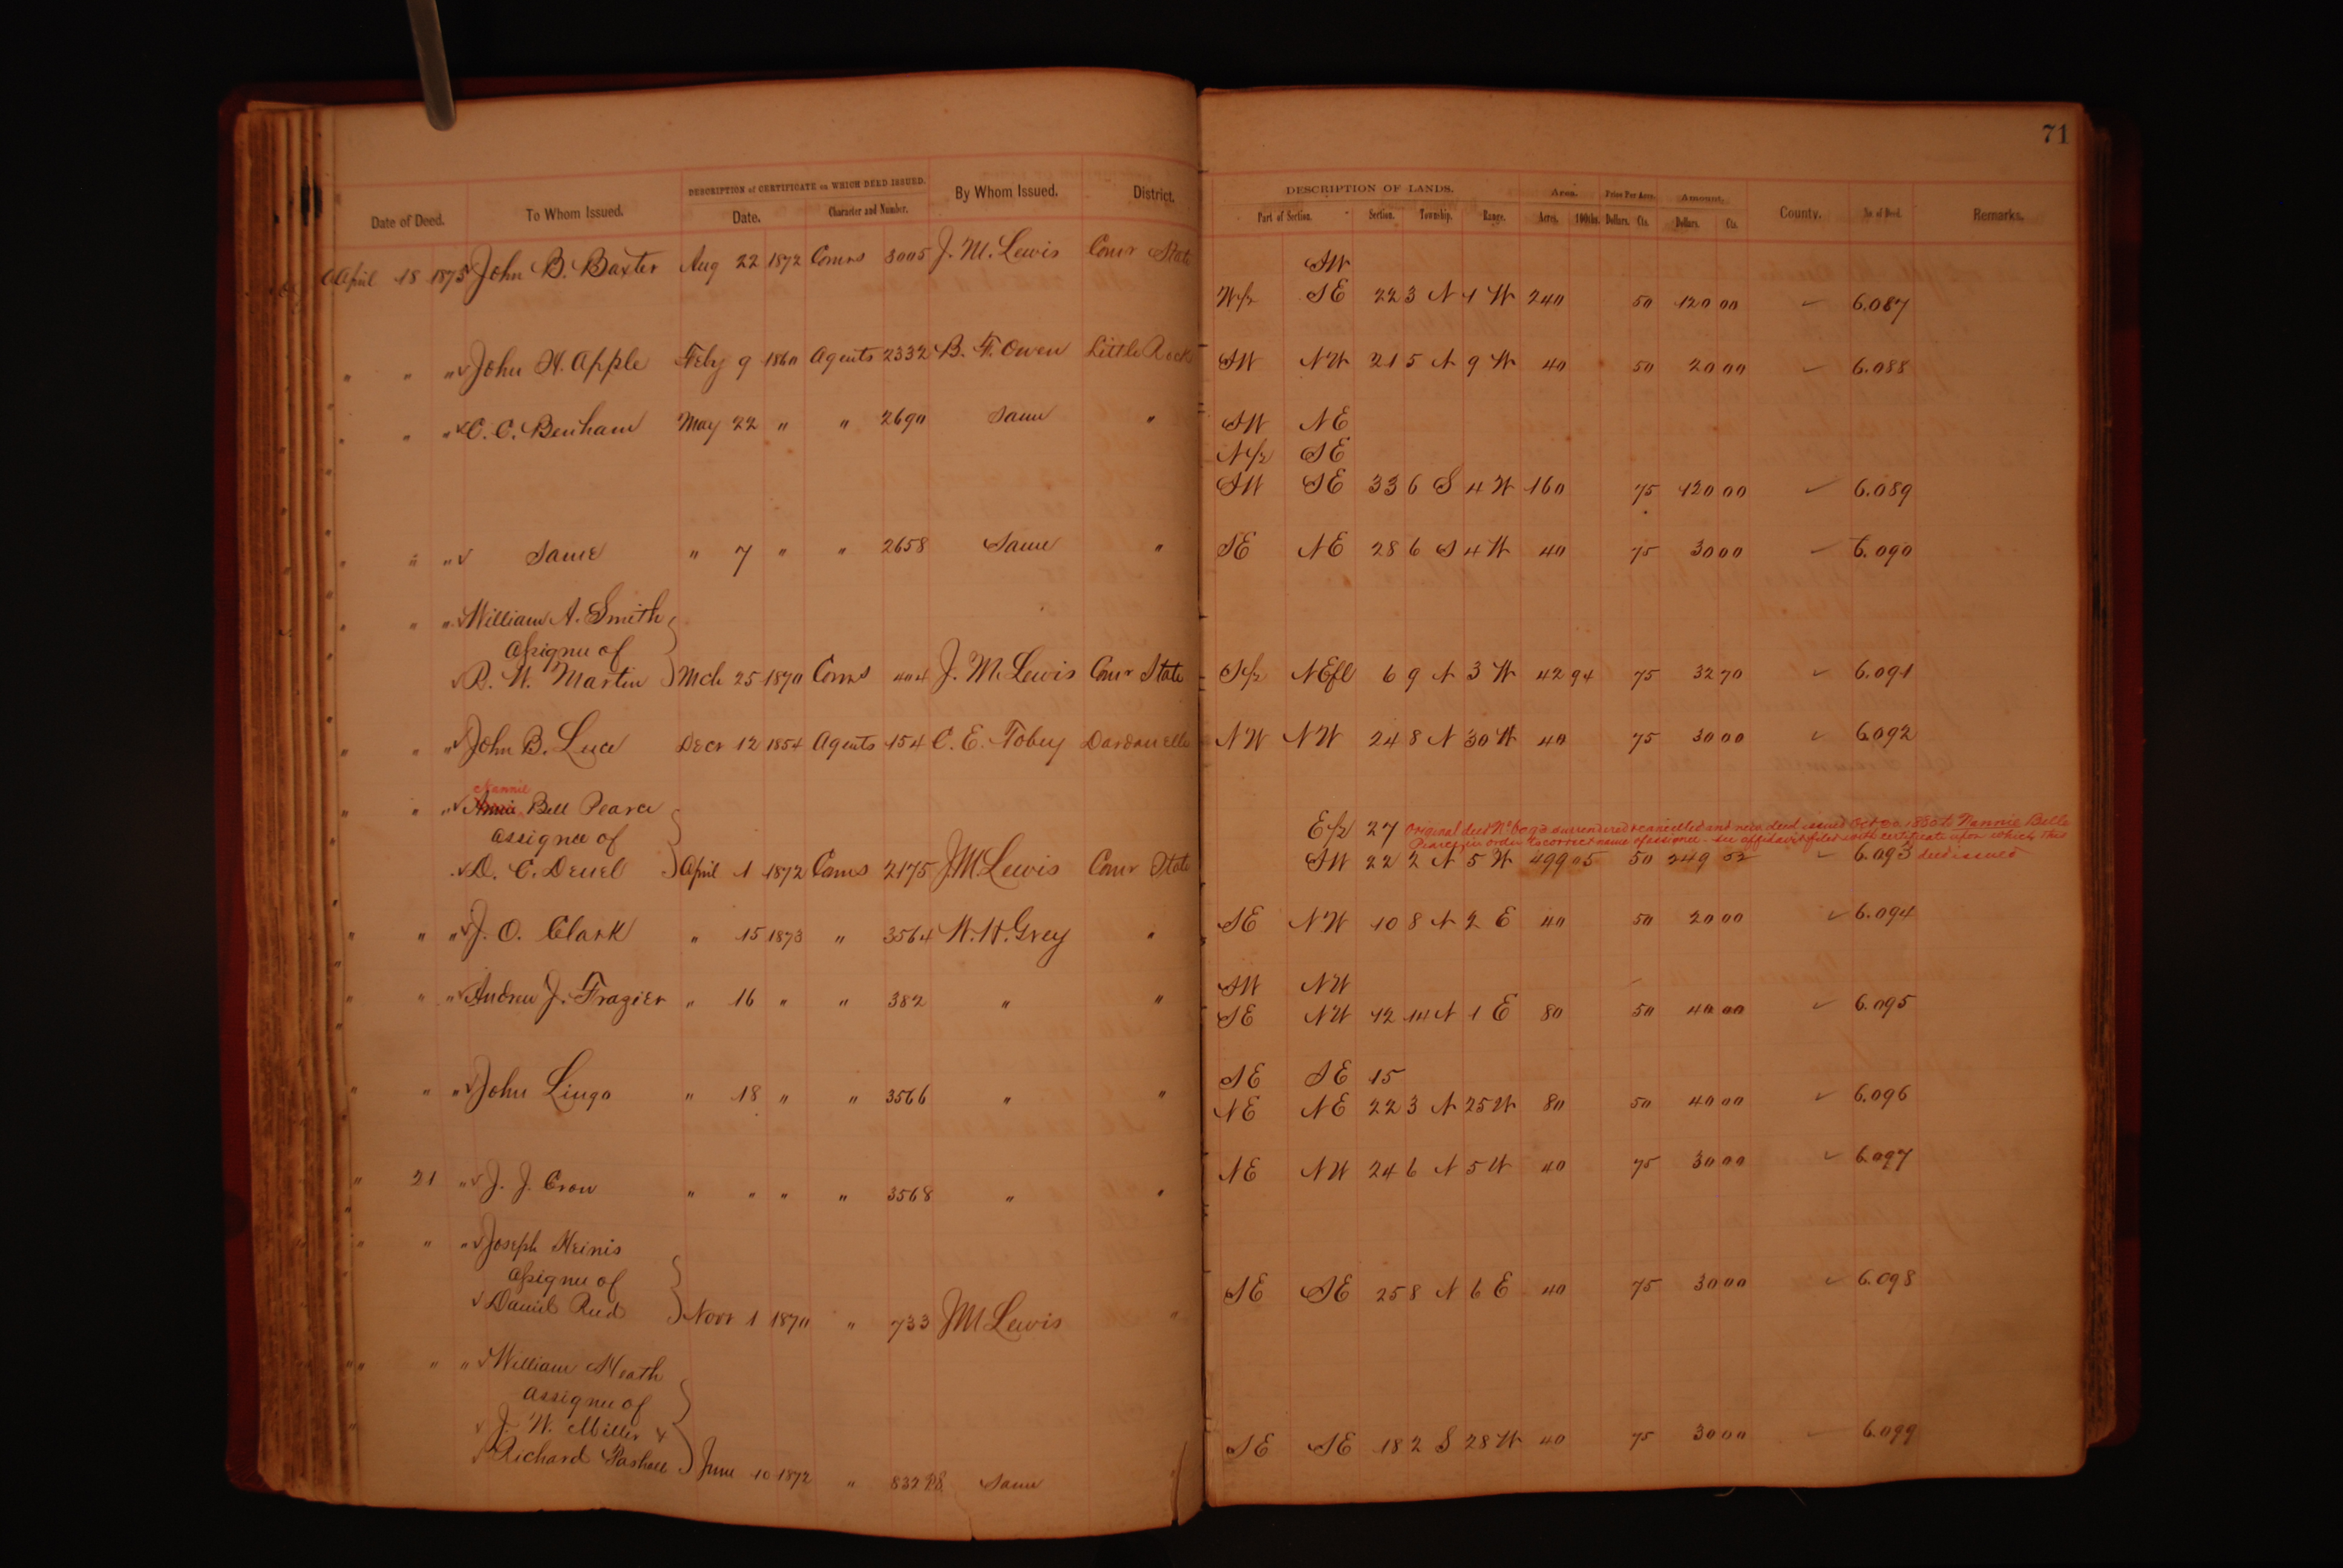 71
DESCRIPTION of CERTIFICATE on WHICH DEED ISSUED. DESCRIPTION OF LANDS. Area. Price Per Acre. Amount.
Date of Deed. To Whom Issued. Date. Character and Number. By Whom Issued. District. Part of Section. Section. Township. Range. Acres. 100ths. Dollars. Cts. Dollars. Cts. County. No. of Deed. Remarks.
April 18 1875 John B. Baxter Aug 22 1872 Comrs 3005 J. M. Lewis Comr State SW
W/2 SE 22 3 N 1 W 240 50 120 00 ✓ 6.087
" " " ✓ John H. Apple Feby 9 1860 Agents 2332 B. F. Owen Little Rock SW NW 21 5 N 9 W 40 50 20 00 ✓ 6.088
" " " ✓ C. C. Benham May 22 " " 2690 Same " SW NE
N/2 SE
SW SE 33 6 S 4 W 160 75 120 00 ✓ 6.089
" " " ✓ Same " 7 " " 2658 Same " SE NE 28 6 S 4 W 40 75 30 00 ✓ 6.090
" " " ✓ William A. Smith
Assignee of
✓ R. W. Martin Mch 25 1870 Comrs 404 J. M. Lewis Comr State S/2 NEfl 6 9 N 3 W 42 94 75 32 70 ✓ 6.091
" " " ✓ John B. Luce Decr 12 1854 Agents 154 C. E. Tobey Dardanelle NW NW 24 8 N 30 W 40 75 30 00 ✓ 6.092
Nannie
" " " ✓ Annie Bell Pearce
assignee of E/2 27 Original deed No 6093 surrendered & cancelled and new deed issued Oct 1880 to Nannie Belle
Pearce in order to correct name of assignee - see affidavit filed with certificate upon which this
✓ D. C. Deuel April 1 1872 Comrs 2175 J M Lewis Comr State SW 22 2 N 5 W 499 05 50 249 52 ✓ 6.093 deed issued
" " " ✓ J. O. Clark " 15 1873 " 3564 W. H. Grey " SE NW 10 8 N 2 E 40 50 20 00 ✓ 6.094
" " " ✓ Andrew J. Frazier " 16 " " 382 " " SW NW
SE NW 12 14 N 1 E 80 50 40 00 ✓ 6.095
" " " ✓ John Lingo " 18 " " 3566 " " SE SE 15
NE NE 22 3 N 25 W 80 50 40 00 ✓ 6.096
" 21 " ✓ J. J. Crow " " " " 3568 " " NE NW 24 6 N 5 W 40 75 30 00 ✓ 6.097
" " " ✓ Joseph Heinis
Assignee of
✓ Daniel Reed Novr 1 1870 " 733 J M Lewis " SE SE 25 8 N 6 E 40 75 30 00 ✓ 6.098
" " " ✓ William Heath
assignee of
✓ J. W. Miller &
✓ Richard Pashall June 10 1872 " 832 Same SE SE 18 2 S 28 W 40 75 30 00 6.099